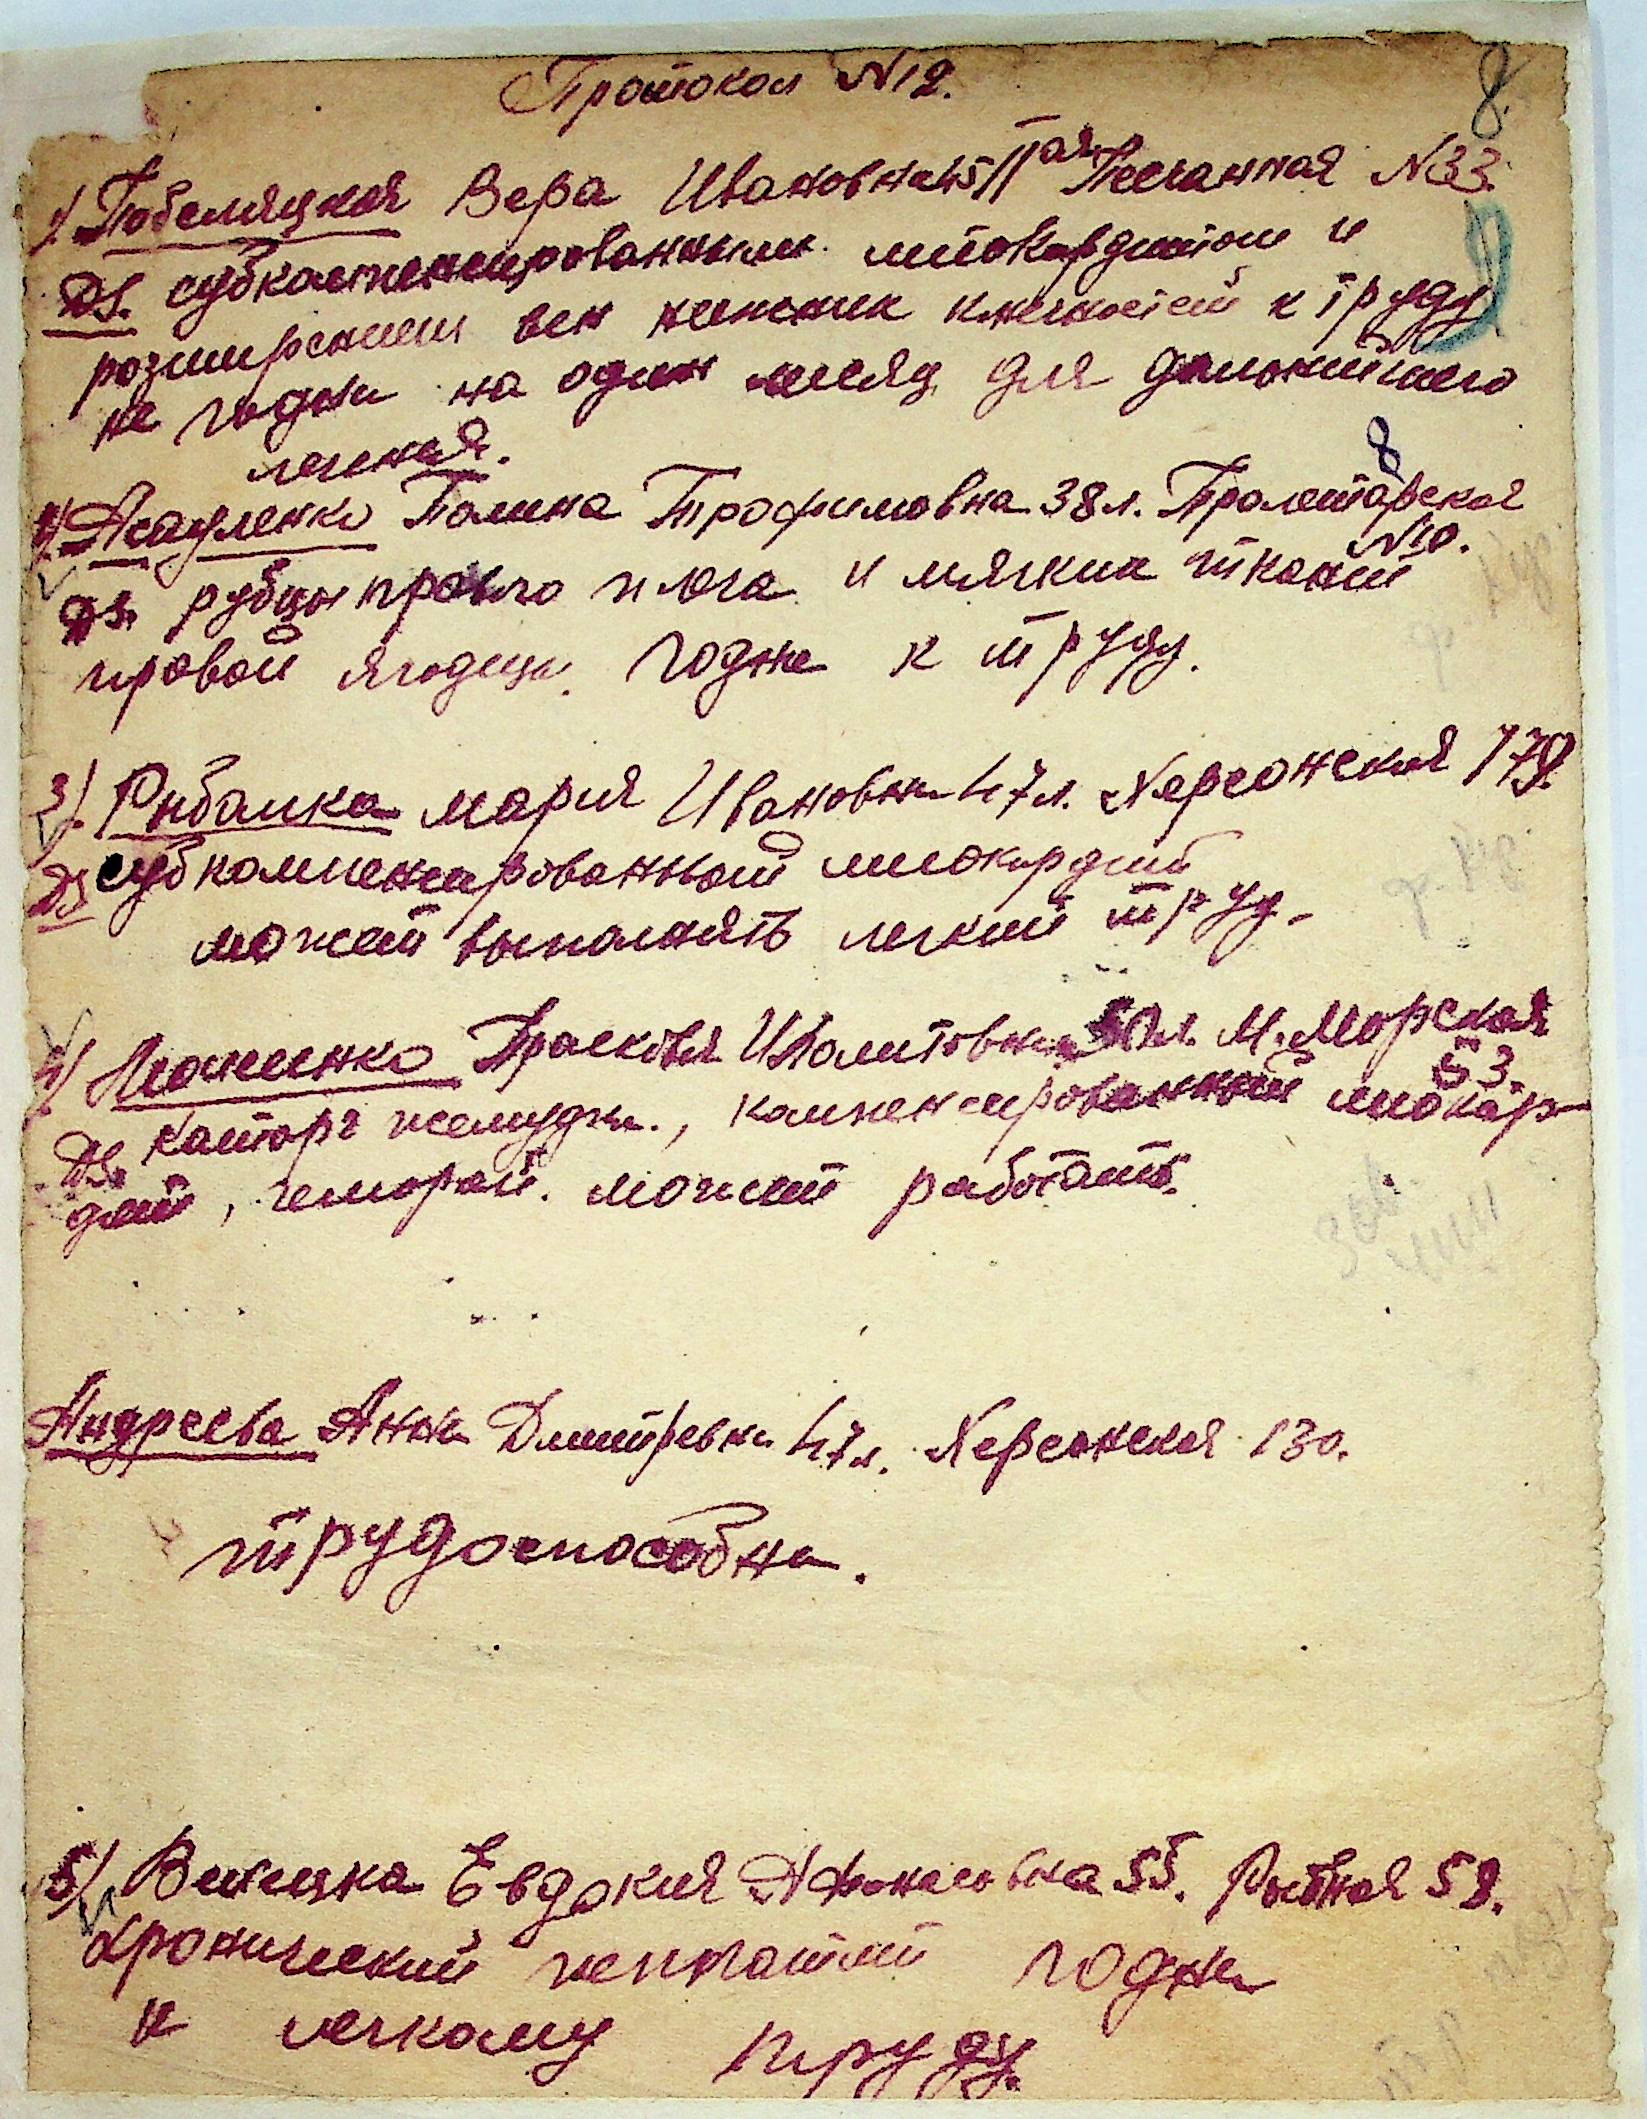 Протокол N12.
8.
1/ Побеляцкая Вера Ивановна 45 IIая Песчанная N33.
Ds. субкомпенсированным миокардитом и
розширением вен нижних конечностей к труду
не годна на один месяц для дальнийшего
лечения.
8
2/ Асауленко Полина Трофимовна 38 л. Пролетарская
N10.
Ds. рубцы правого плеча и мягких тканий
правой ягодицы. Годна к труду.
3/. Рыбалка Мария Ивановна 47 л. Херсонская 179.
Ds субкомпенсированный миокардит
может выполнять легкий труд.
4/ Прасковья Иполитовна 50 л. М. Морская
53.
Ds. Катарр желудка., компенсированный миокар-
дит, геморой. может работать.
Андреева Анна Дмитревна 47 л. Херсонская 130.
трудоспособна.
5/ Евдокия Афанасьевна 55. Рыбная 59.
Хронический гепатит годна
к легкому труду.